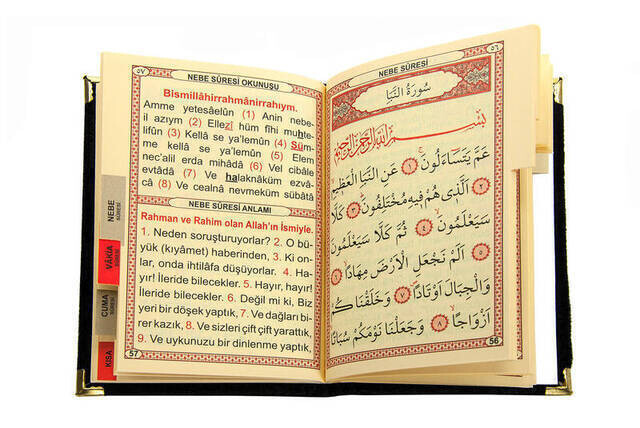 ٥٧
NEBE SÛRESİ OKUNUŞU
Bismillâhirrahmânirrahıym.
Amme yetesâelûn (1) Anin nebe-
il azıym (2) Ellezî hüm fîhi muhte-
lifûn (3) Kellâ se ya'lemûn (4) Süm-
me kellâ se ya'lemûn (5) Elem
nec'alil erda mihâdâ (6) Vel cibâle
evtâdâ (7) Ve halaknâküm ezvâ-
câ (8) Ve cealnâ nevmeküm sübâtâ
NEBE SÛRESİ ANLAMI
Rahman ve Rahim olan Allah'ın İsmiyle.
1. Neden soruşturuyorlar? 2. O bü-
yük (kıyâmet) haberinden, 3. Ki on-
lar, onda ihtilâfa düşüyorlar. 4. Ha-
yır! İleride bilecekler. 5. Hayır, hayır!
İleride bilecekler. 6. Değil mi ki, Biz
yeri bir döşek yaptık, 7. Ve dağları bi-
rer kazık, 8. Ve sizleri çift çift yarattık,
9. Ve uykunuzu bir dinlenme yaptık,
57
NEBE
SÛRESİ
VÂKIA
SÛRESİ
CUMA
SÛRESİ
KISA
٥٦
NEBE SÛRESİ
سُورَةُ النَّبَأِ
بِسْمِ اللّٰهِ الرَّحْمٰنِ الرَّحِيمِ
عَمَّ يَتَسَآءَلُونَ ﴿١﴾ عَنِ النَّبَأِ الْعَظِيمِ
﴿٢﴾ اَلَّذِى هُمْ فِيهِ مُخْتَلِفُونَ ﴿٣﴾ كَلَّا
سَيَعْلَمُونَ ﴿٤﴾ ثُمَّ كَلَّا سَيَعْلَمُونَ
﴿٥﴾ اَلَمْ نَجْعَلِ الْاَرْضَ مِهَادًا ﴿٦﴾
وَالْجِبَالَ اَوْتَادًا ﴿٧﴾ وَخَلَقْنَاكُمْ
اَزْوَاجًا ﴿٨﴾ وَجَعَلْنَا نَوْمَكُمْ سُبَاتًا
56